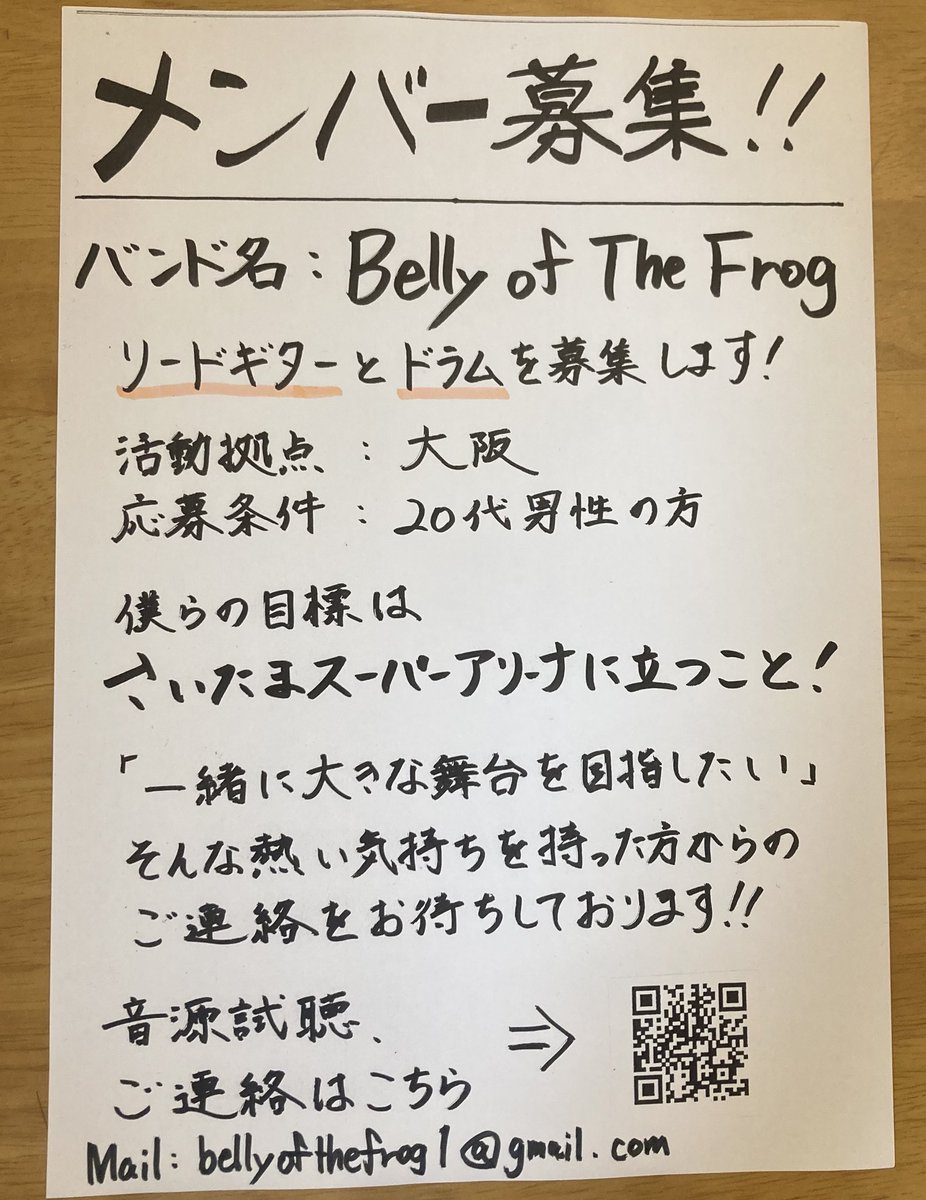 メンバー募集!!
バンド名：Belly of The Frog
リードギターとドラムを募集します!
活動拠点：大阪
応募条件：20代男性の方
僕らの目標は
さいたまスーパーアリーナに立つこと!
「一緒に大きな舞台を目指したい」
そんな熱い気持ちを持った方からの
ご連絡をお待ちしております!!
音源試聴、
ご連絡はこちら ⇒
Mail：bellyofthefrog1@gmail.com